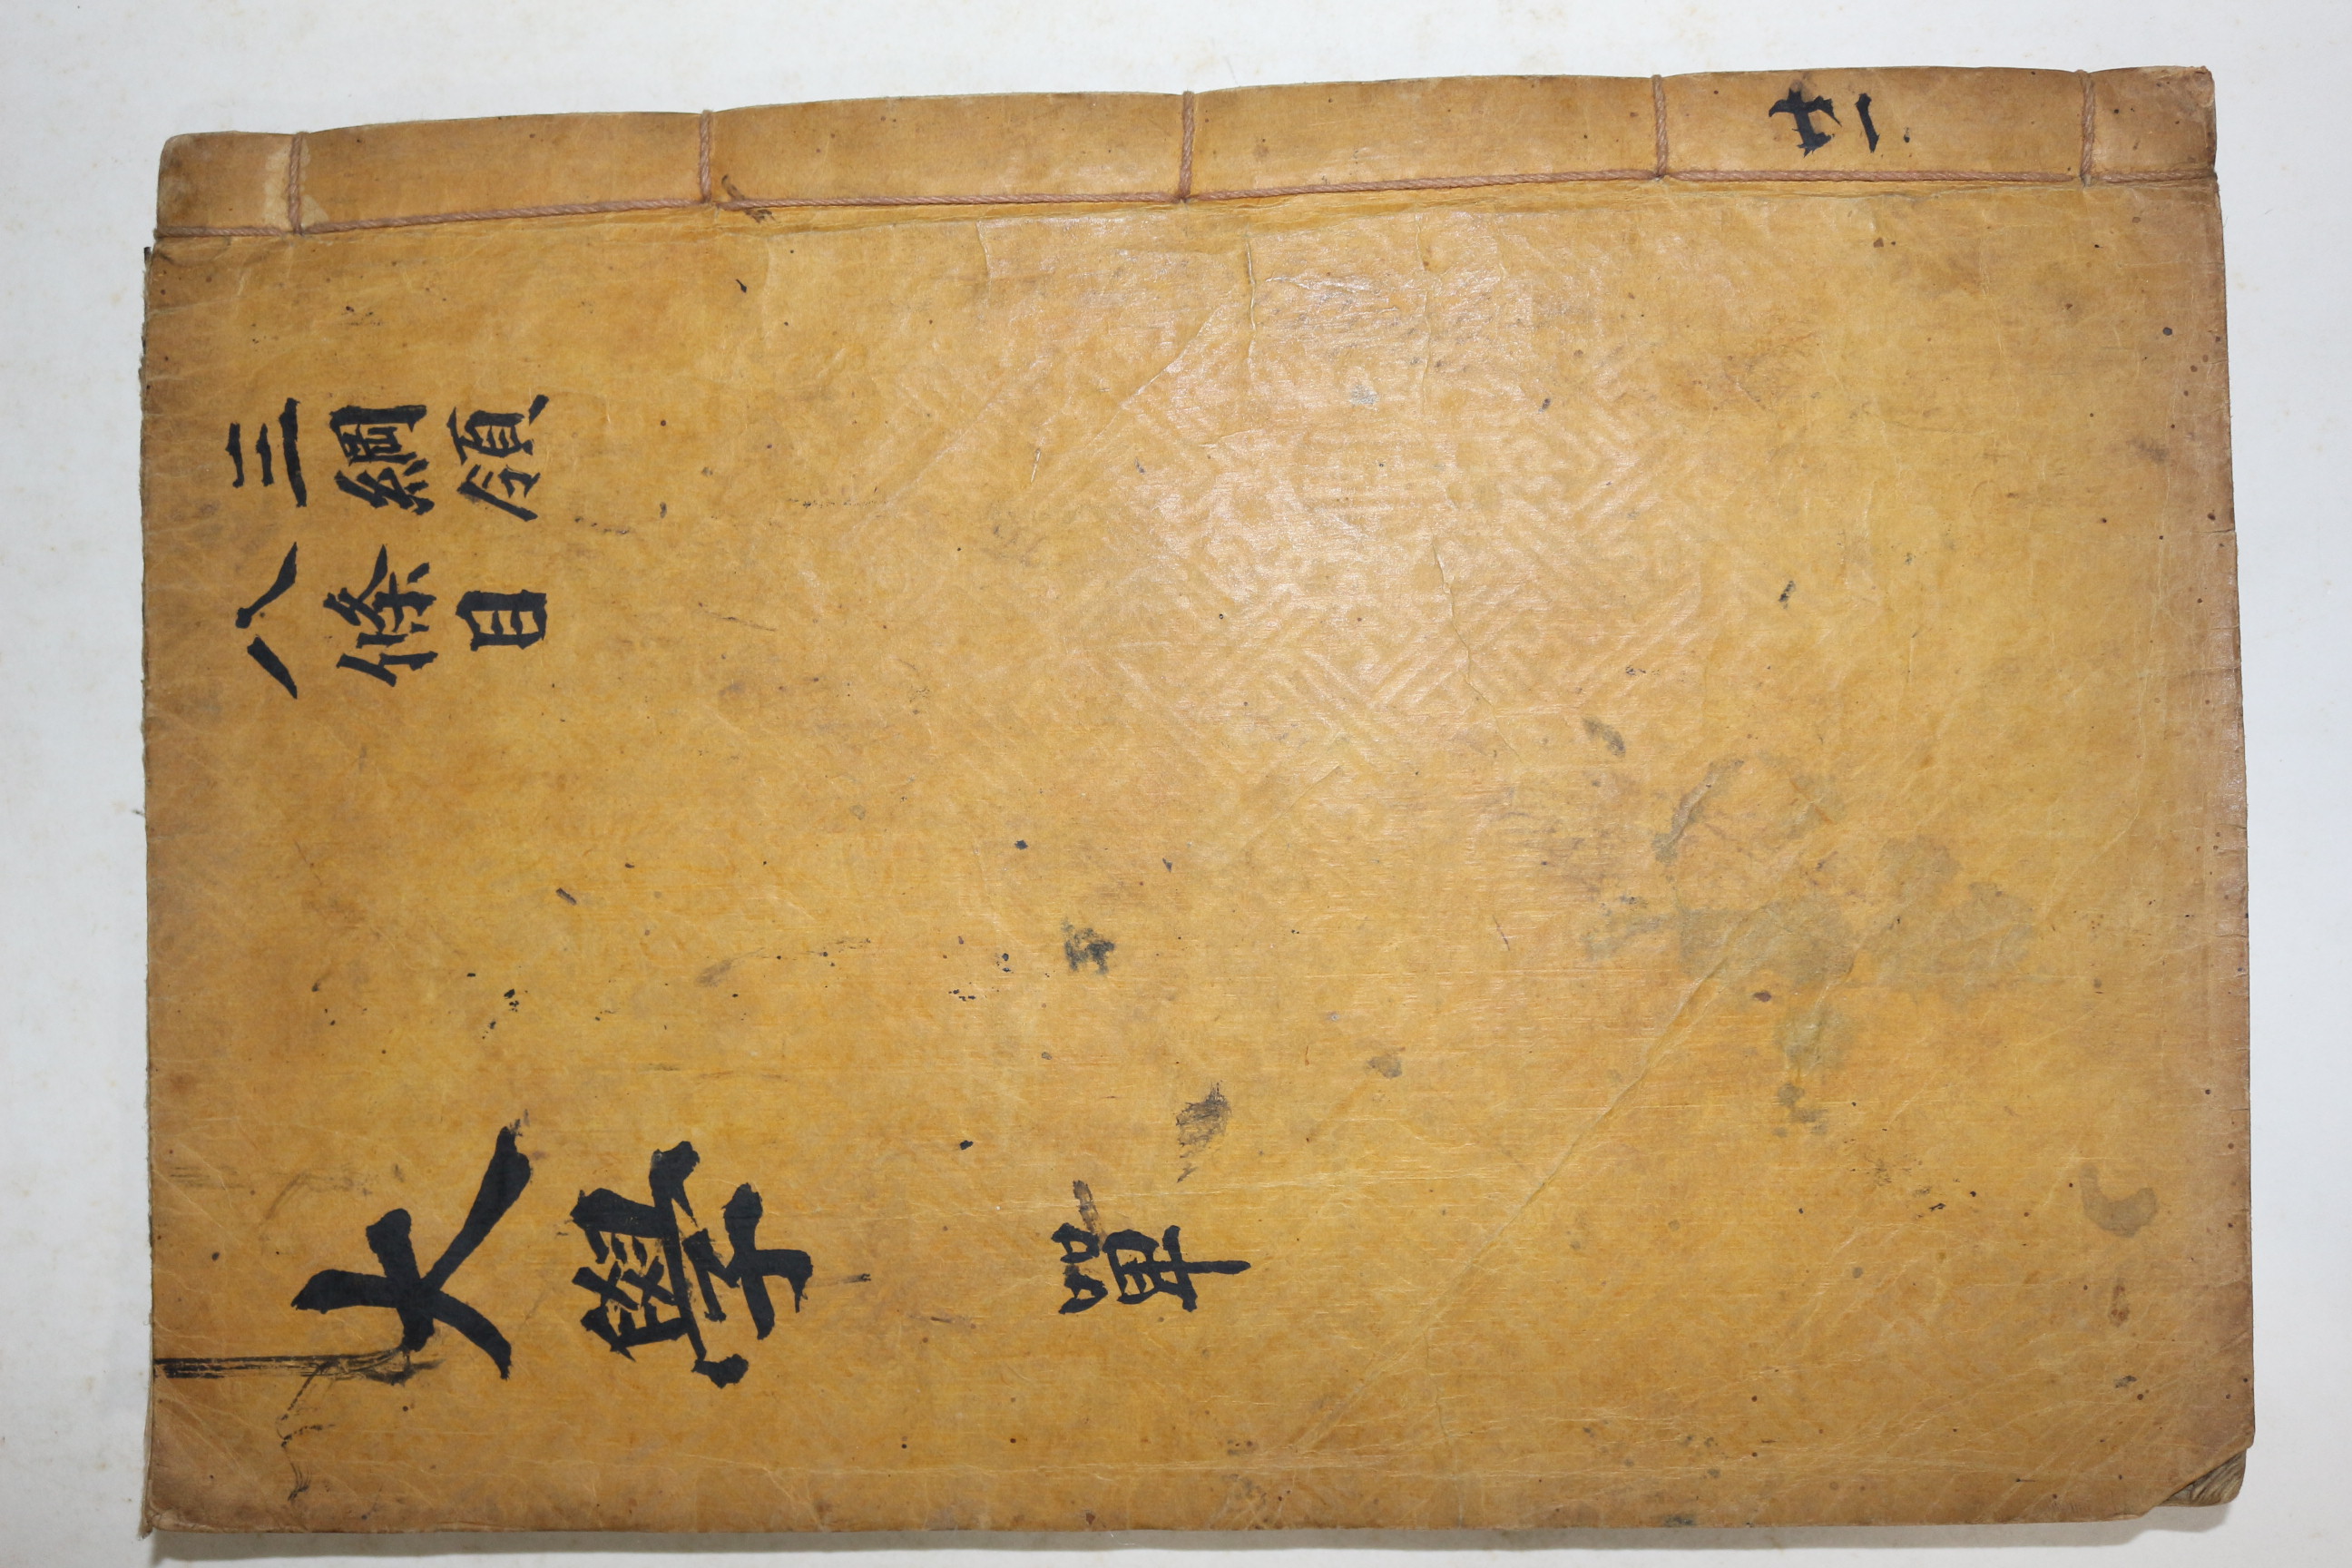 共一
三綱領
八條目
大學 單